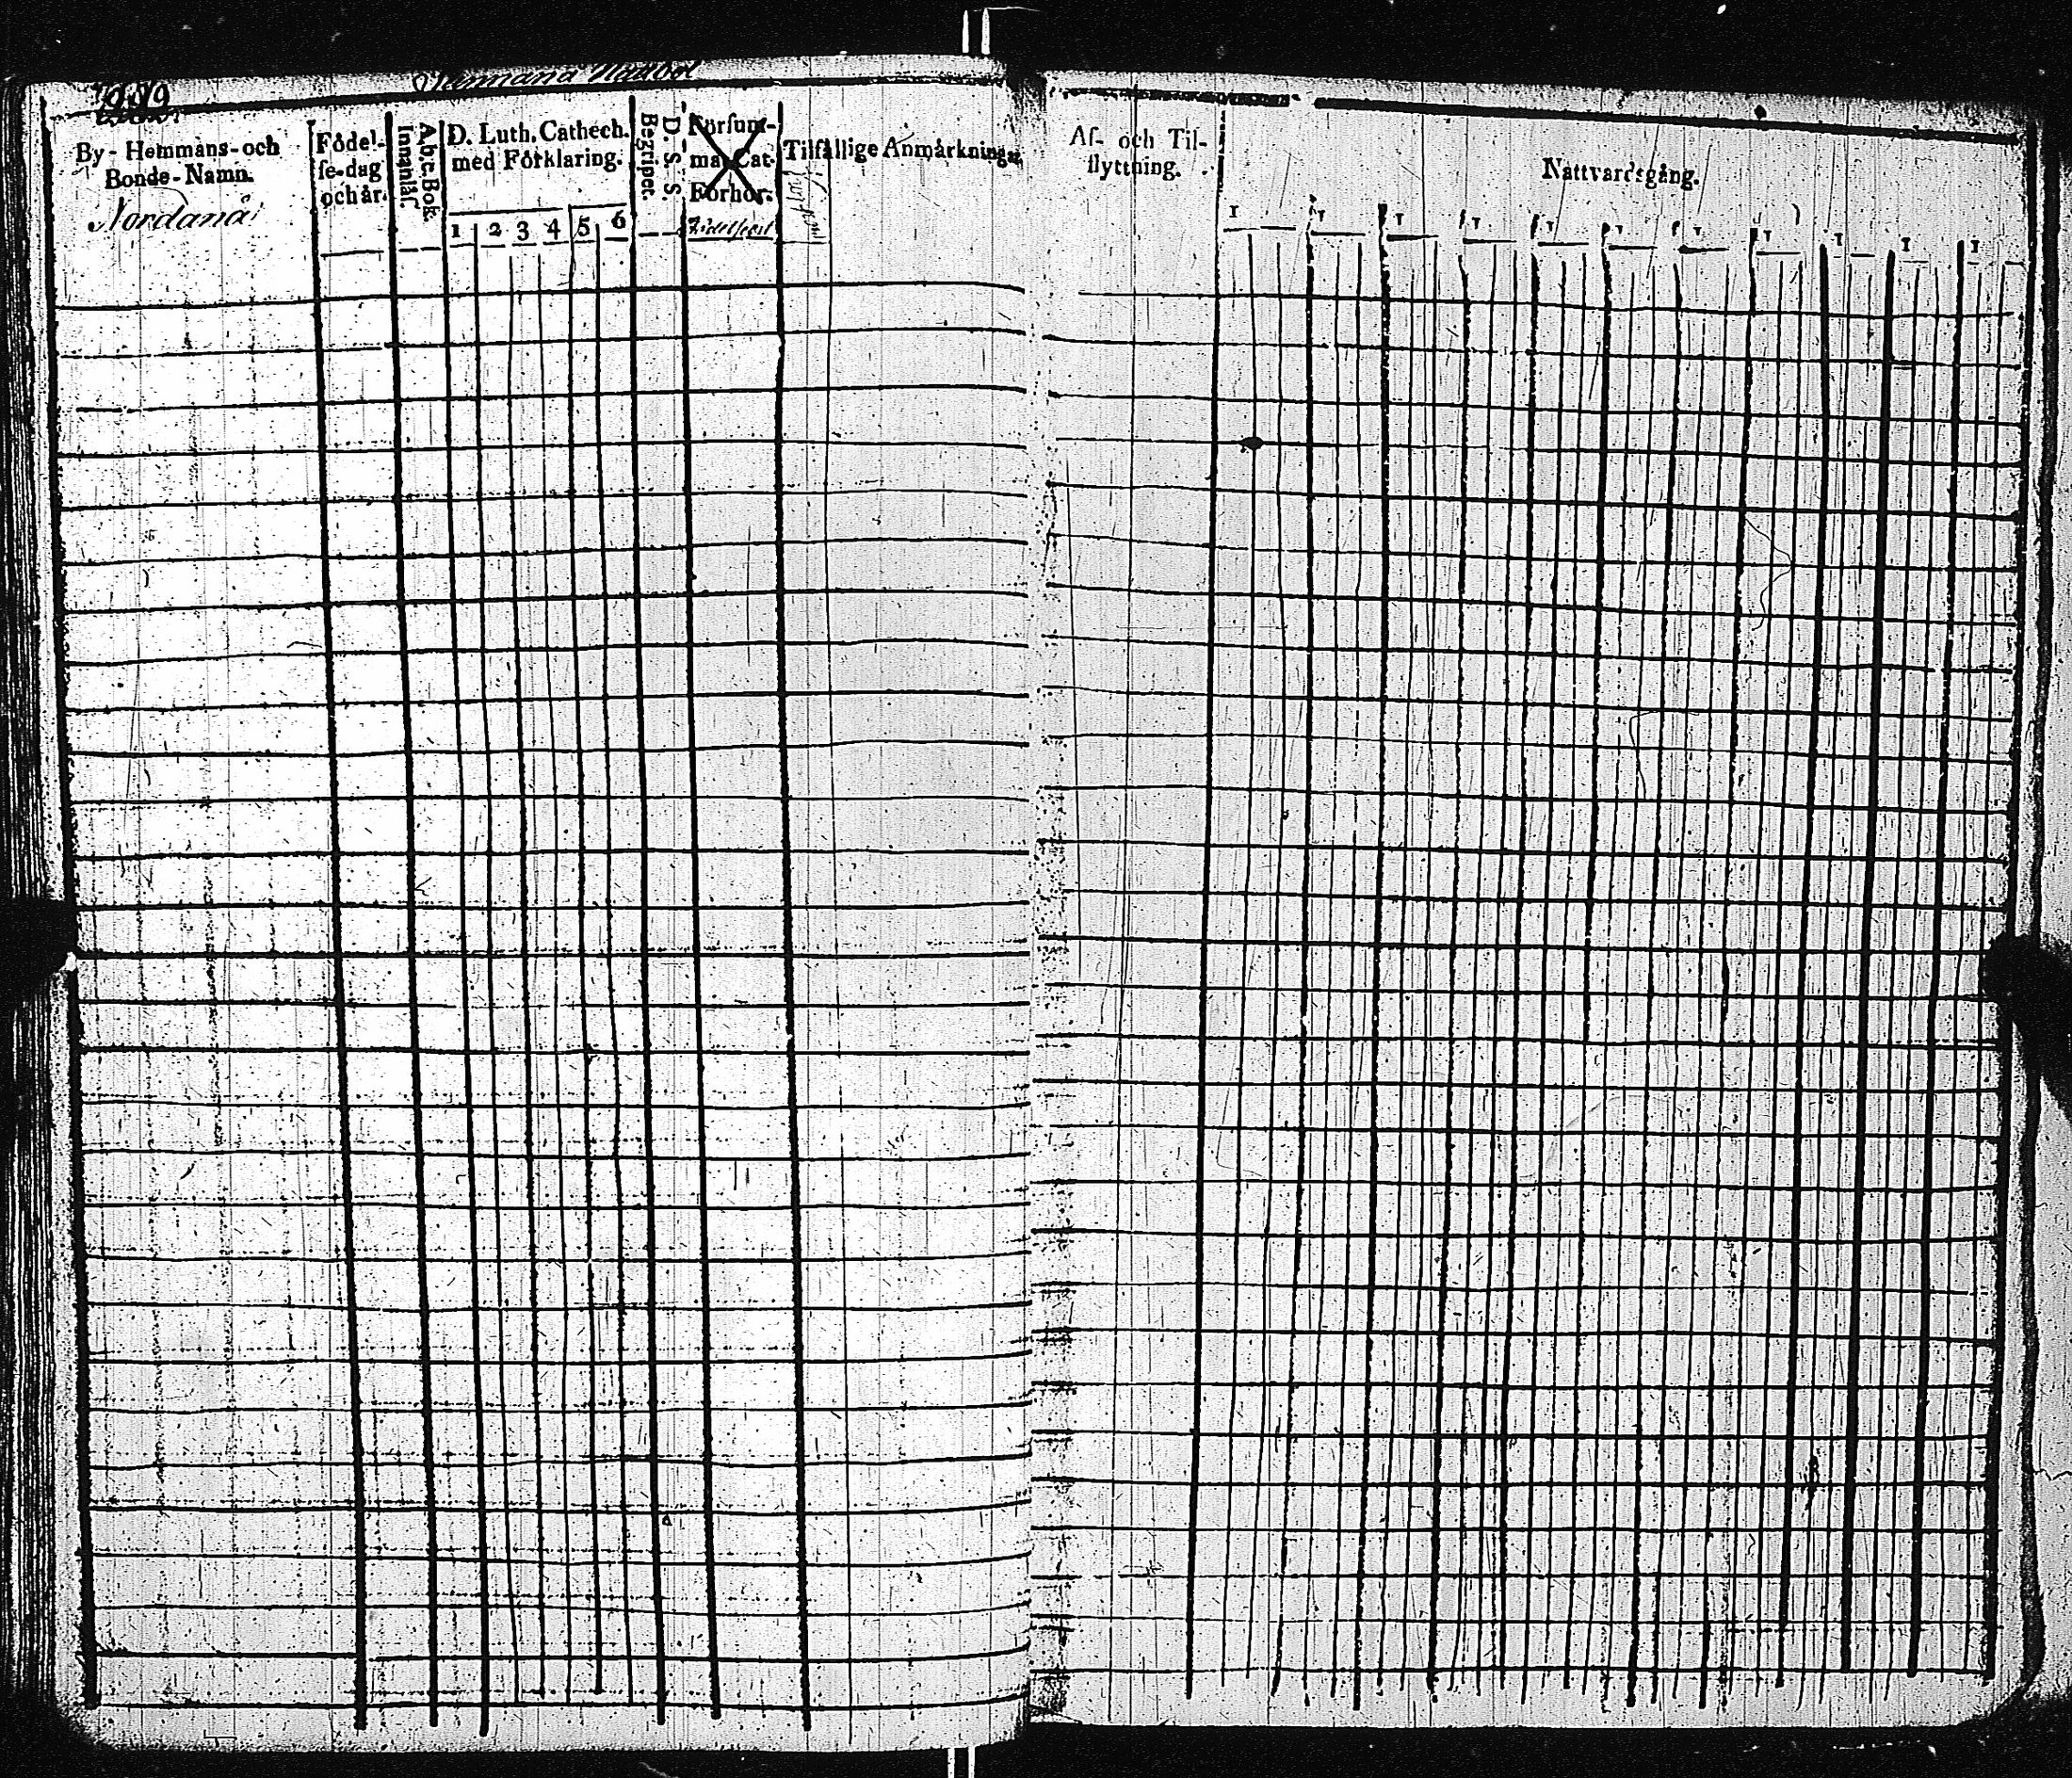 By-Hemmans-och
Bonde-Namn.
Nordanå
Födel-
se-dag
och år.
A,b,c, Bok.
Innanläs.
D. Luth. Cathech.
med Förklaring.
1 2 3 4 5 6
D. S. S.
Begripet.
Försum-
ma Cat.
Förhör.
Tilfällige Anmärkningar
Af- och Til-
flyttning.
Nattvardsgång.